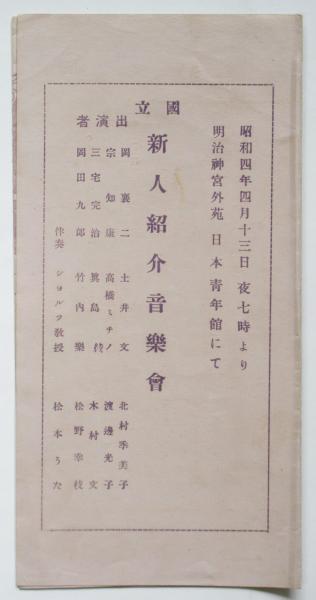 昭和四年四月十三日 夜七時より
明治神宮外苑 日本青年館にて
國立
新人紹介音樂會
出演者
岡襄二 土井文 北村季美子
宗知康 高橋ミチノ 渡邊光子
三宅完治 箕島 木村文
岡田九郎 竹内樂 松野幸枝
伴奏 ショルツ敎授 松本うた